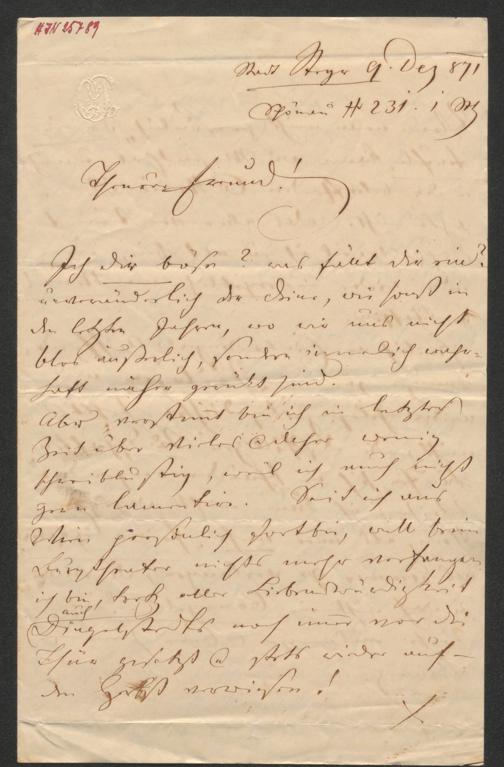 HJN 25789
Stadt Steyr 9. Dez 871
Schönau № 231. i St
Theurer Freund!
Ich dir böse? was fällt dir ein?
unveränderlich der deine, wie sonst in
den letzten Jahren, wo wir uns nicht
blos äußerlich, sondern innerlich wahr-
haft näher gerückt sind.
Aber verstimmt bin ich in letzter
Zeit über vieles & daher wenig
schreiblustig, weil ich auch nicht
gern lamentire. Seit ich aus
Wien persönlich fort bin, will beim
Burgtheater nichts mehr verfangen
ich bin, trotz aller Liebenswürdigkeit
auch
Dingelstedts noch immer vor die
Thür gesetzt & stets wieder auf
den Herbst verwiesen!